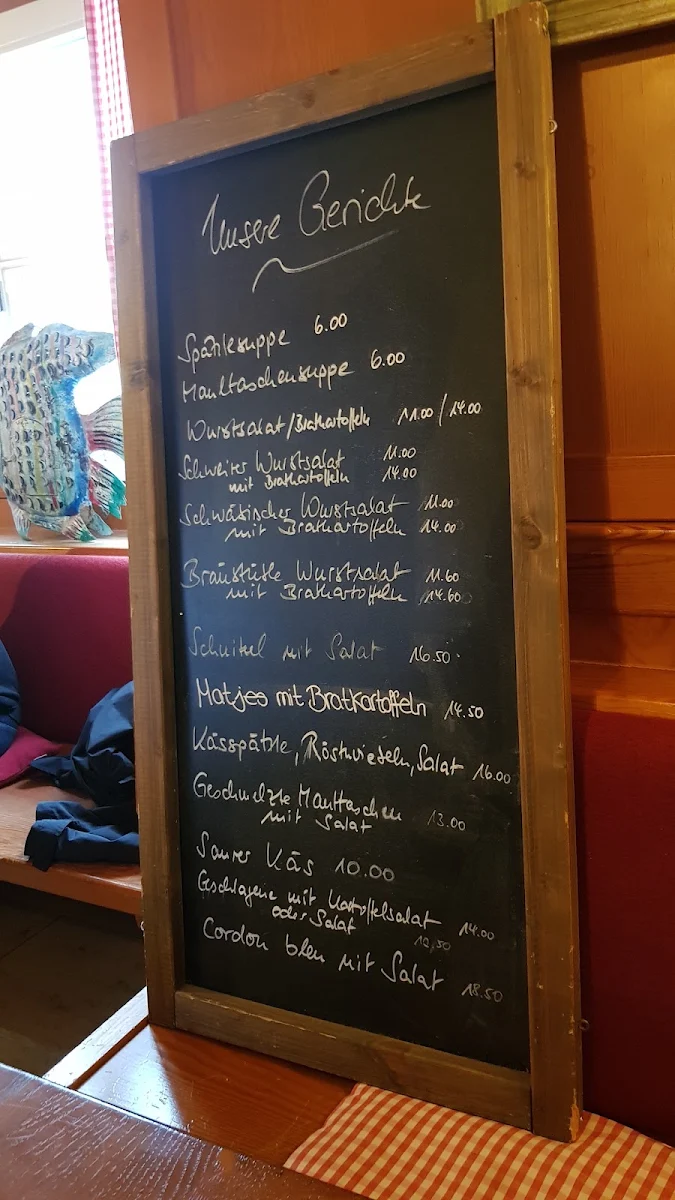 Unsere Gerichte
Spätzlesuppe 6.00
Maultaschensuppe 6.00
Wurstsalat/Bratkartoffeln 11.00/14.00
Schweizer Wurstsalat 11.00
mit Bratkartoffeln 14.00
Schwäbischer Wurstsalat 11.00
mit Bratkartoffeln 14.00
Bräustüble Wurstsalat 11.60
mit Bratkartoffeln 14.60
Schnitzel mit Salat 16.50
Matjes mit Bratkartoffeln 14.50
Kässpätzle, Röstzwiebeln, Salat 16.00
Geschmelzte Maultaschen
mit Salat 13.00
Saurer Käs 10.00
Geschlagene mit Kartoffelsalat 14.00
oder Salat 12,50
Cordon bleu mit Salat 18.50